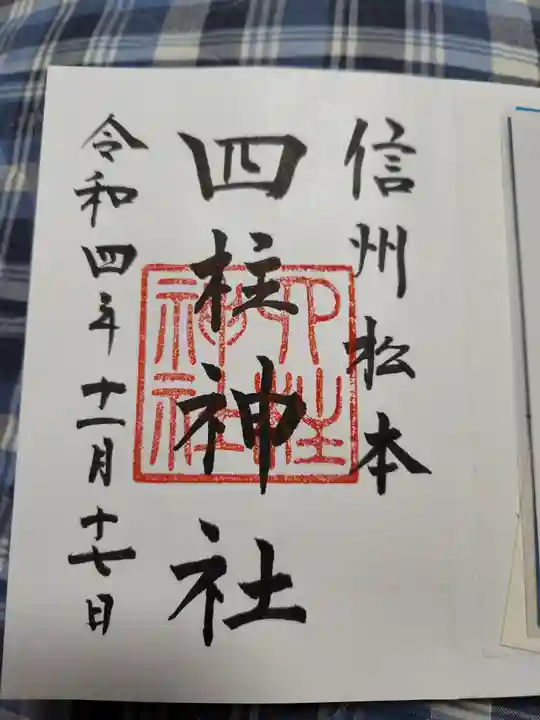 信州松本
四柱神社
四柱
神社
令和四年十一月十七日